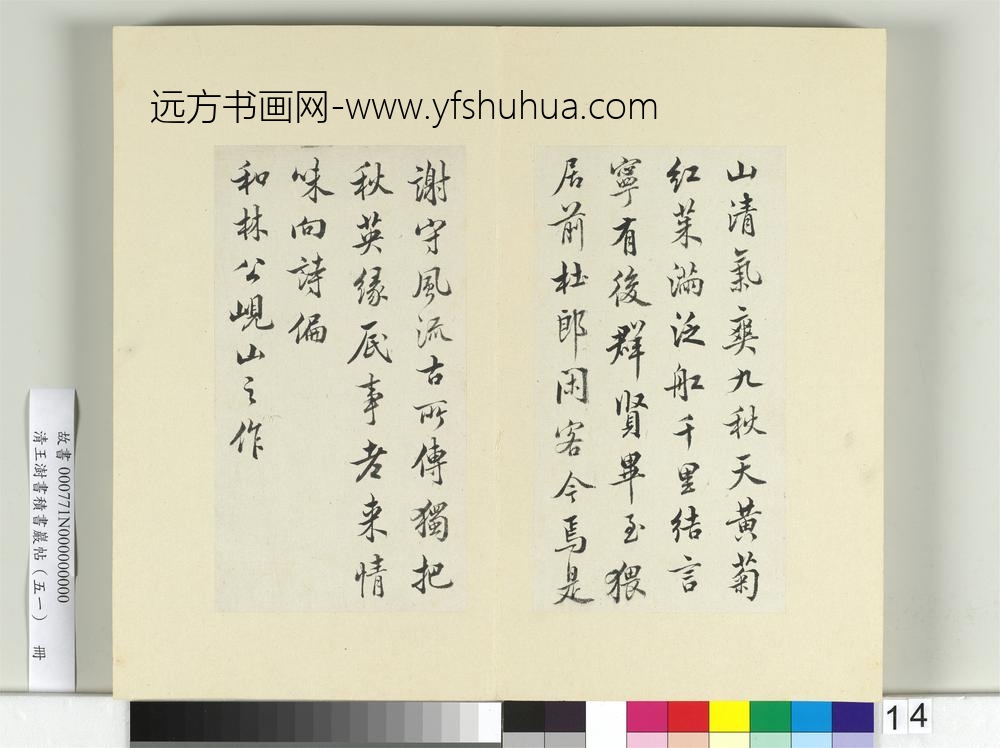 远方书画网-www.yfshuhua.com
山清氣爽九秋天黃菊
紅茱滿泛舡千里結言
寧有後群賢畢至猥
居前杜郎閑客今焉是
謝守風流古所傳獨把
秋英緣底事老来情
味向詩偏
和林公峴山之作
故書 000771N000000000
清王澍書積書巖帖（五一） 冊
14